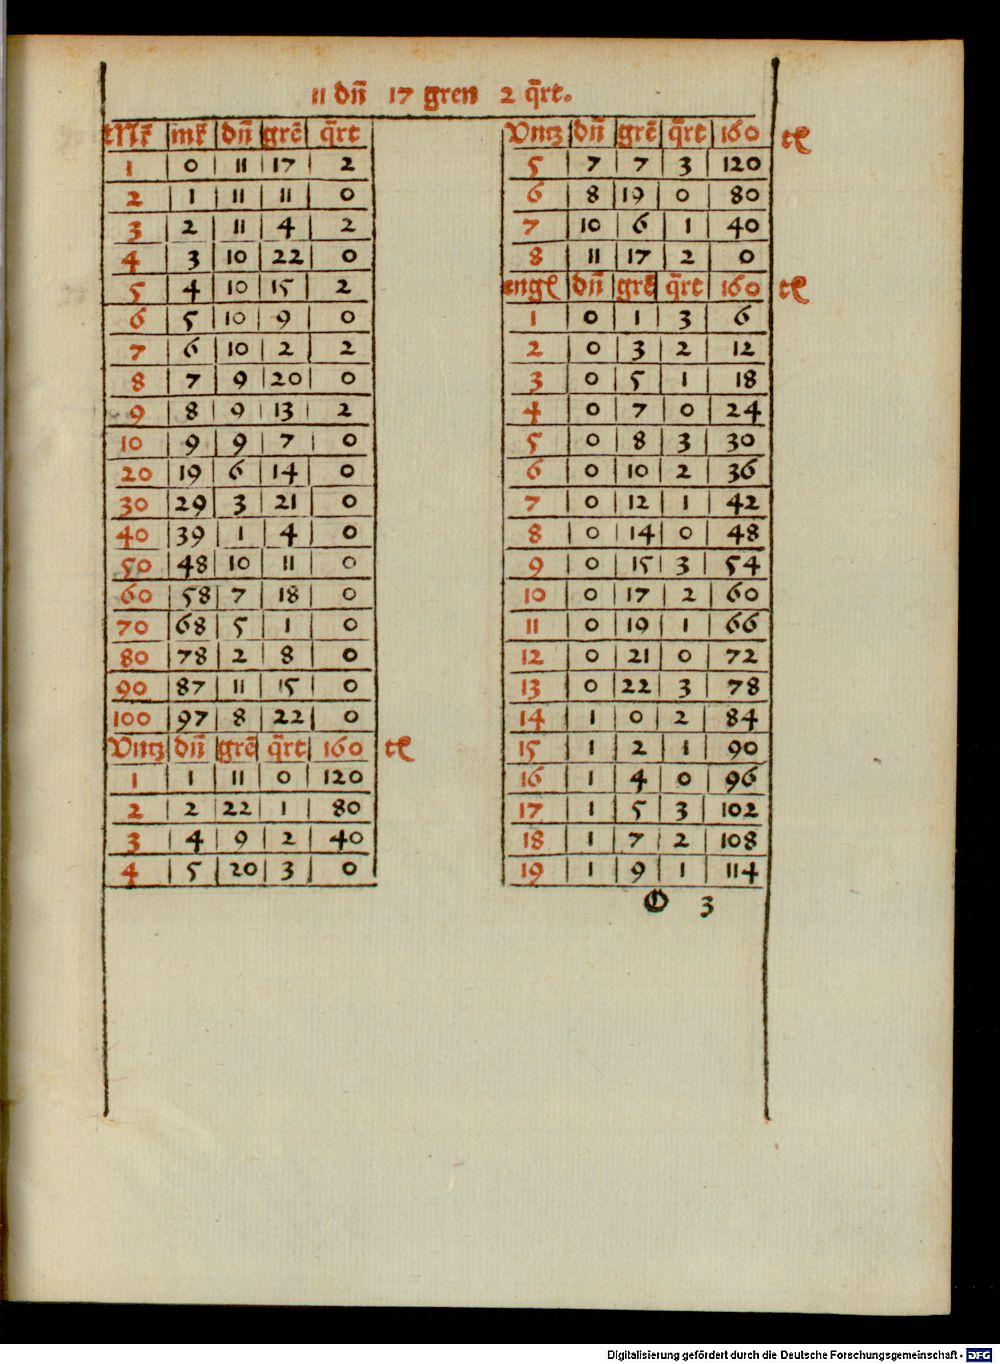 11 dn̄ 17 gren 2 q̄rt.
Mk̄ mk̄ dn̄ grē q̄rt
1 0 11 17 2
2 1 11 11 0
3 2 11 4 2
4 3 10 22 0
5 4 10 15 2
6 5 10 9 0
7 6 10 2 2
8 7 9 20 0
9 8 9 13 2
10 9 9 7 0
20 19 6 14 0
30 29 3 21 0
40 39 1 4 0
50 48 10 11 0
60 58 7 18 0
70 68 5 1 0
80 78 2 8 0
90 87 11 15 0
100 97 8 22 0
Vntz dn̄ grē q̄rt 160 tl̄
1 1 11 0 120
2 2 22 1 80
3 4 9 2 40
4 5 20 3 0
Vntz dn̄ grē q̄rt 160 tl̄
5 7 7 3 120
6 8 19 0 80
7 10 6 1 40
8 11 17 2 0
engl̄ dn̄ grē q̄rt 160 tl̄
1 0 1 3 6
2 0 3 2 12
3 0 5 1 18
4 0 7 0 24
5 0 8 3 30
6 0 10 2 36
7 0 12 1 42
8 0 14 0 48
9 0 15 3 54
10 0 17 2 60
11 0 19 1 66
12 0 21 0 72
13 0 22 3 78
14 1 0 2 84
15 1 2 1 90
16 1 4 0 96
17 1 5 3 102
18 1 7 2 108
19 1 9 1 114
3
Digitalisierung gefördert durch die Deutsche Forschungsgemeinschaft - DFG